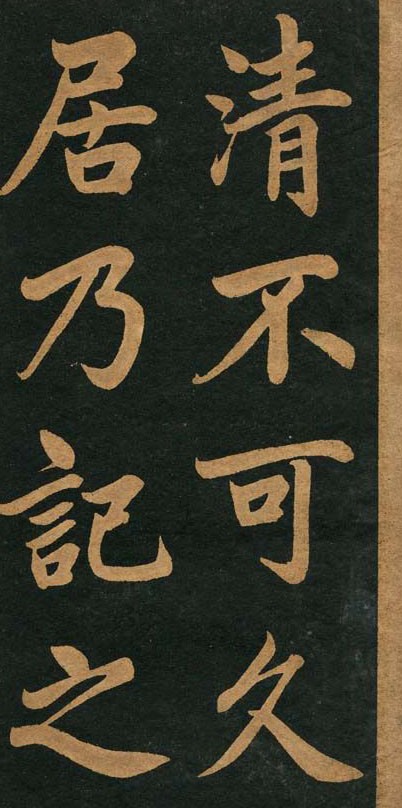 清不可久
居乃記之